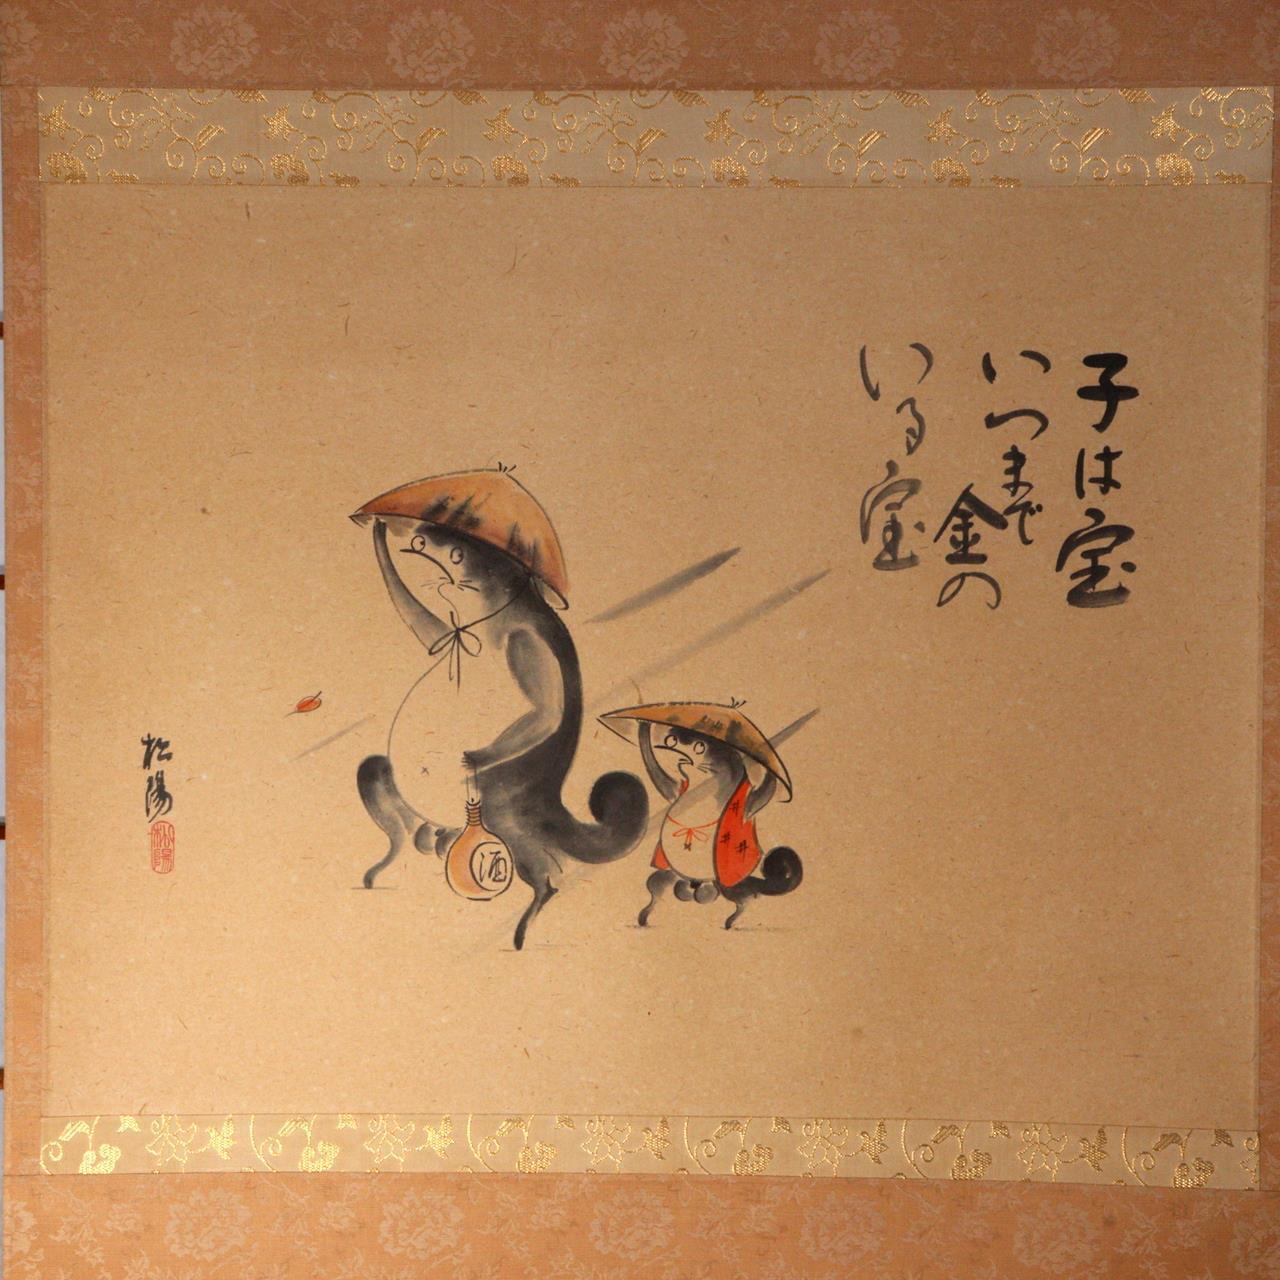 子は宝
いつまで
金の
いる宝
松陽
松陽
酒